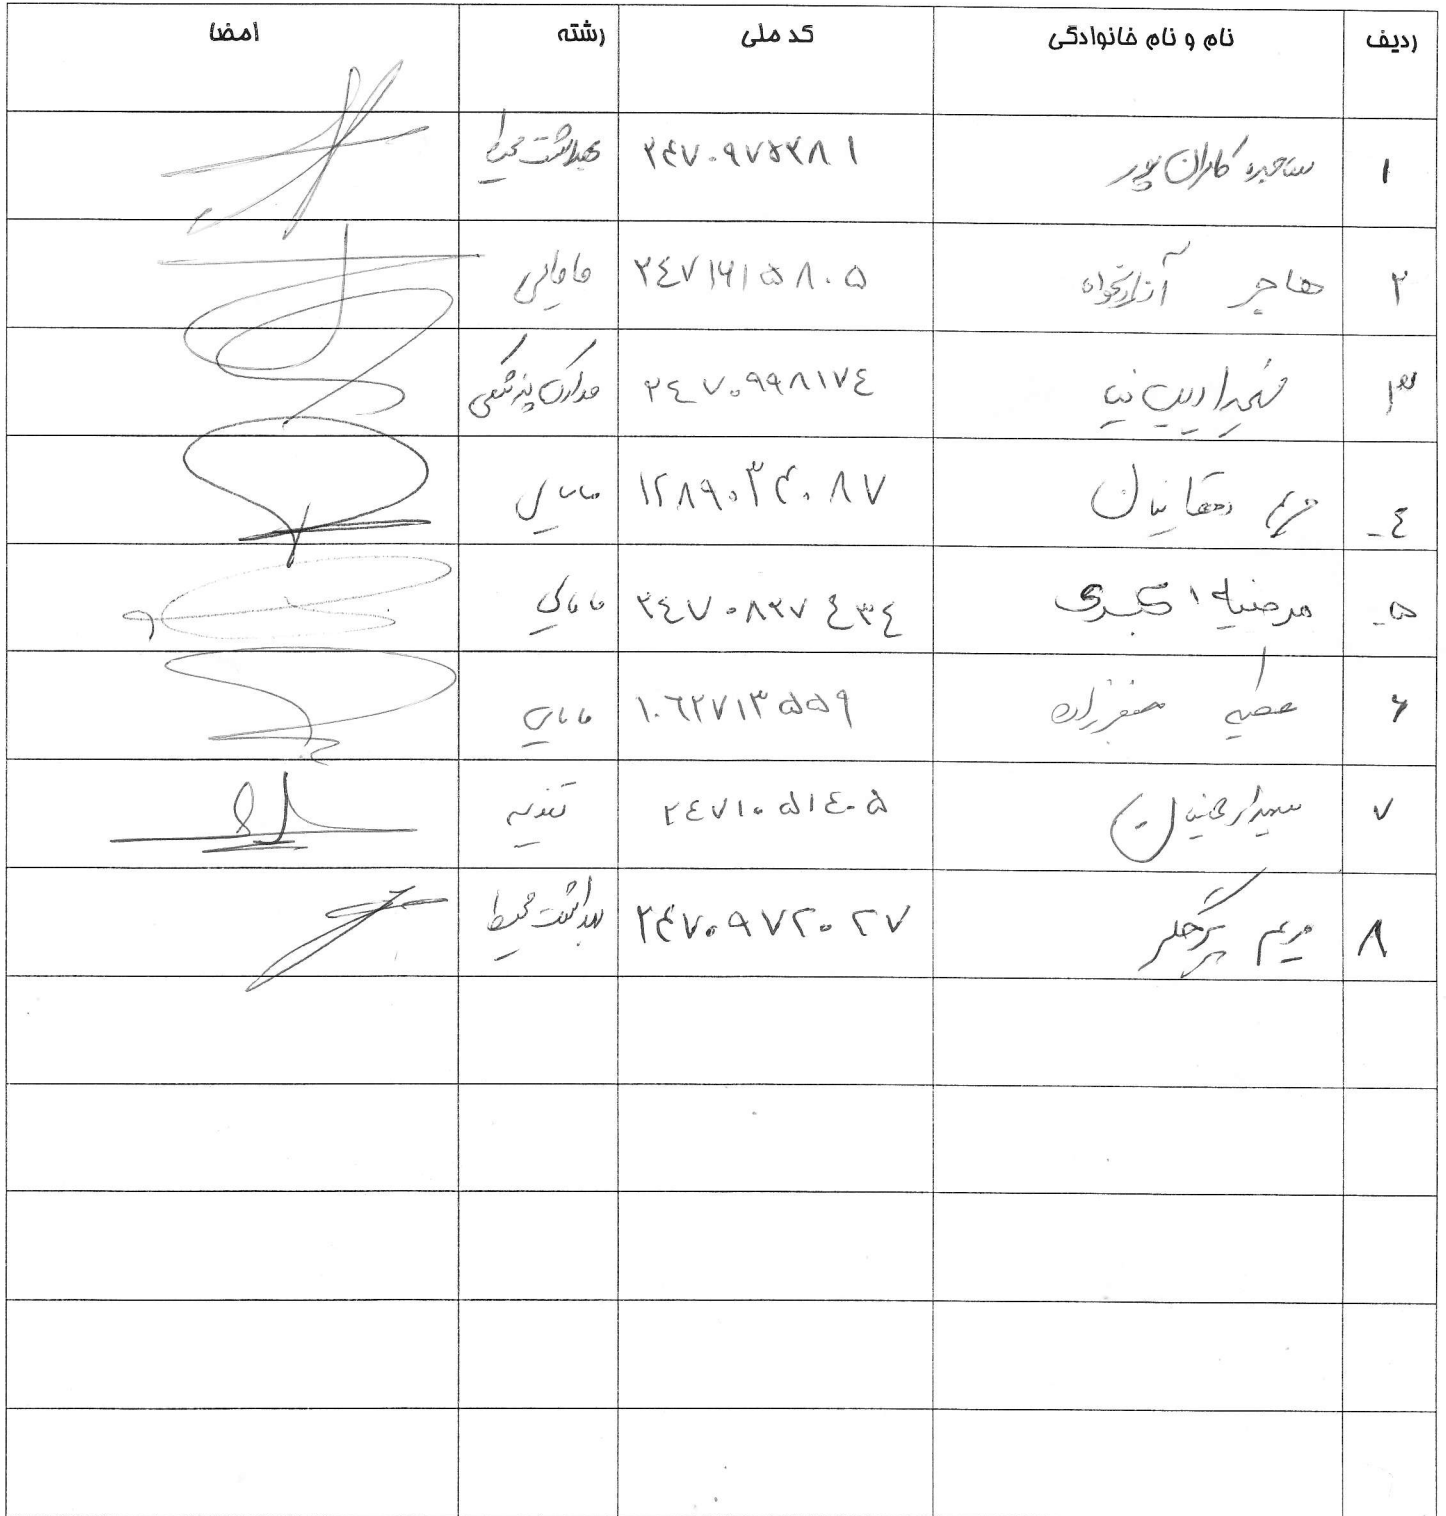 ردیف نام و نام خانوادگی کد ملی رشته امضا
۱ کامران پور ۲۴۷۰۹۷۵۲۸۱ بهداشت محیط
۲ هاجر آزادیخواه ۲۴۷۱۶۱۵۸۰۵ مامایی
۳ ادیب نیا ۲۴۷۰۹۹۸۱۷۴ مدارک پزشکی
۴- مریم دهقانیان ۱۲۸۹۰۳۴۰۸۷ مامایی
۵- مرضیه اکبری ۲۴۷۰۸۲۷۴۳۴ مامایی
۶ عطیه صفرزاده ۱۰۶۲۷۱۳۵۵۹ مامایی
۷ ۲۴۷۱۰۵۱۴۰۵ تغذیه
۸ مریم ۲۴۷۰۹۷۲۰۲۷ بهداشت محیط